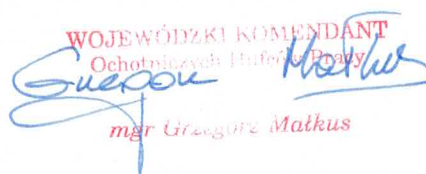 WOJEWÓDZKI KOMENDANT
Ochotniczych Hufców Pracy
Grzegorz Matkus
mgr Grzegorz Matkus